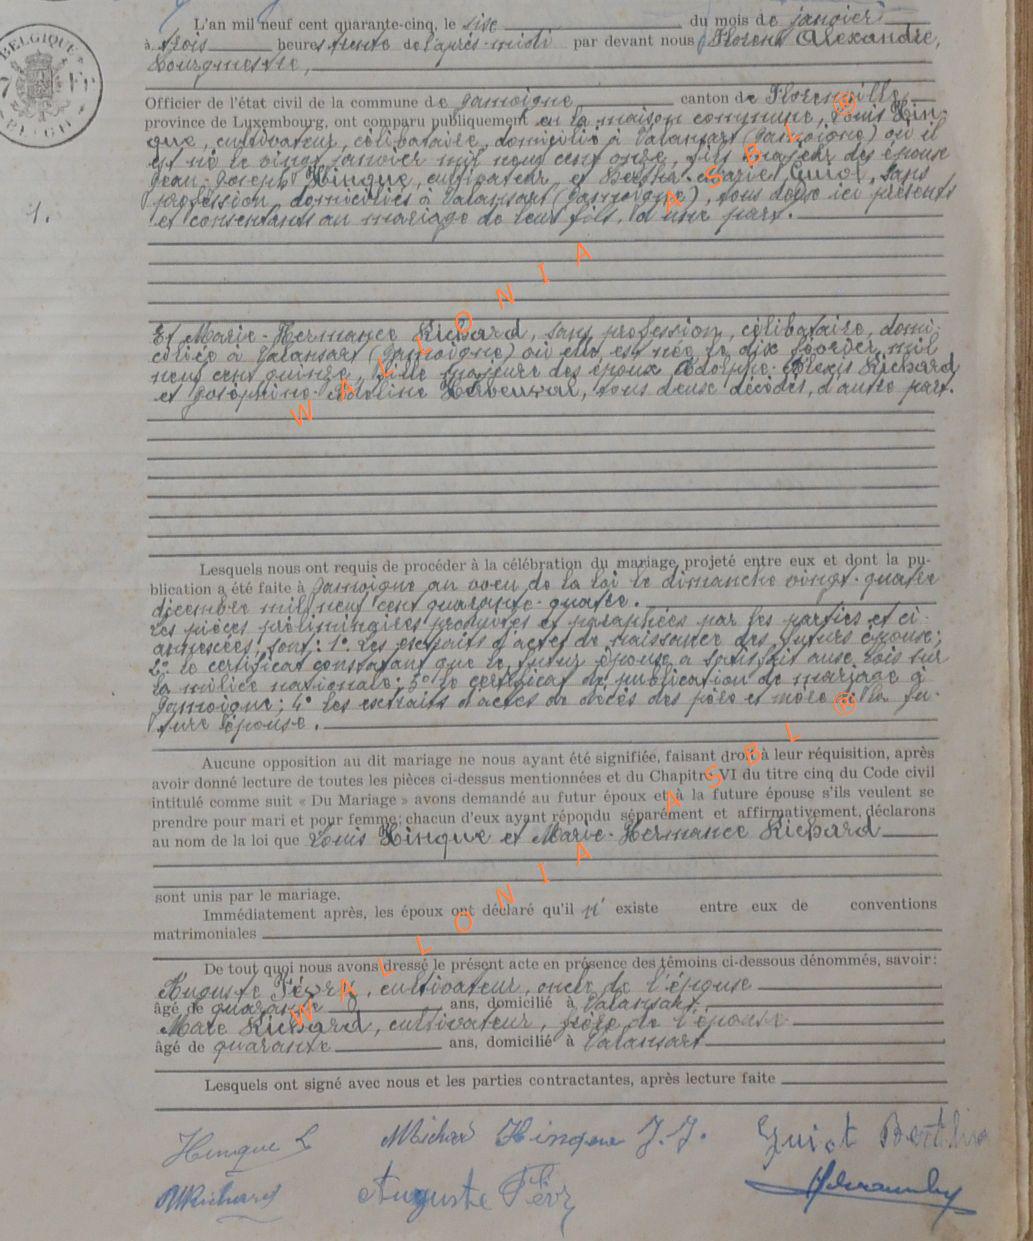 L'an mil neuf cent quarante-cinq, le six du mois de janvier
à trois heures trente de l'après-midi par devant nous Florent Alexandre,
Bourgmestre,
Officier de l'état civil de la commune de Jamoigne, canton de Florenville,
province de Luxembourg, ont comparu publiquement en la maison commune, Louis Hin-
que, cultivateur, célibataire, domicilié à Valansart (Jamoigne) où il
est né le vingt janvier mil neuf cent onze, fils majeur des époux
Jean-Joseph Hinque, cultivateur et Bertha-Marie Guiot, sans
profession, domiciliés à Valansart (Jamoigne), tous deux ici présents
et consentants au mariage de leur fils, d'une part.
1.
Et Marie-Hermance Richard, sans profession, célibataire, domi-
ciliée à Valansart (Jamoigne) où elle est née le dix février mil
neuf cent quinze, fille majeure des époux Adolphe-Alexis Richard
et Joséphine-Adeline, tous deux décédés, d'autre part.
Lesquels nous ont requis de procéder à la célébration du mariage projeté entre eux et dont la pu-
blication a été faite à Jamoigne au vœu de la loi le dimanche vingt-quatre
décembre mil neuf cent quarante-quatre.
Les pièces préliminaires produites et paraphées par les parties et ci-
annexées, sont: 1° Les extraits d'actes de naissance des futurs époux;
2° le certificat constatant que le futur époux a satisfait aux lois sur
la milice nationale; 3° le certificat de publication de mariage à
Jamoigne; 4° les extraits d'actes de décès des père et mère de la fu-
ture épouse.
Aucune opposition au dit mariage ne nous ayant été signifiée, faisant droit à leur réquisition, après
avoir donné lecture de toutes les pièces ci-dessus mentionnées et du Chapitre VI du titre cinq du Code civil
intitulé comme suit « Du Mariage » avons demandé au futur époux et à la future épouse s'ils veulent se
prendre pour mari et pour femme; chacun d'eux ayant répondu séparément et affirmativement, déclarons
au nom de la loi que Louis Hinque et Marie-Hermance Richard
sont unis par le mariage.
Immédiatement après, les époux ont déclaré qu'il n' existe entre eux de conventions
matrimoniales
De tout quoi nous avons dressé le présent acte en présence des témoins ci-dessous dénommés, savoir:
Auguste Févry, cultivateur, oncle de l'épouse
âgé de quarante ans, domicilié à Valansart,
Marc Richard, cultivateur, frère de l'épouse
âgé de quarante ans, domicilié à Valansart
Lesquels ont signé avec nous et les parties contractantes, après lecture faite
Hinque L MRichard Hinque J.J. Guiot Bertha
MRichard Auguste Févry
WALLONIA ASBL ®
WALLONIA ASBL ®
BELGIQUE